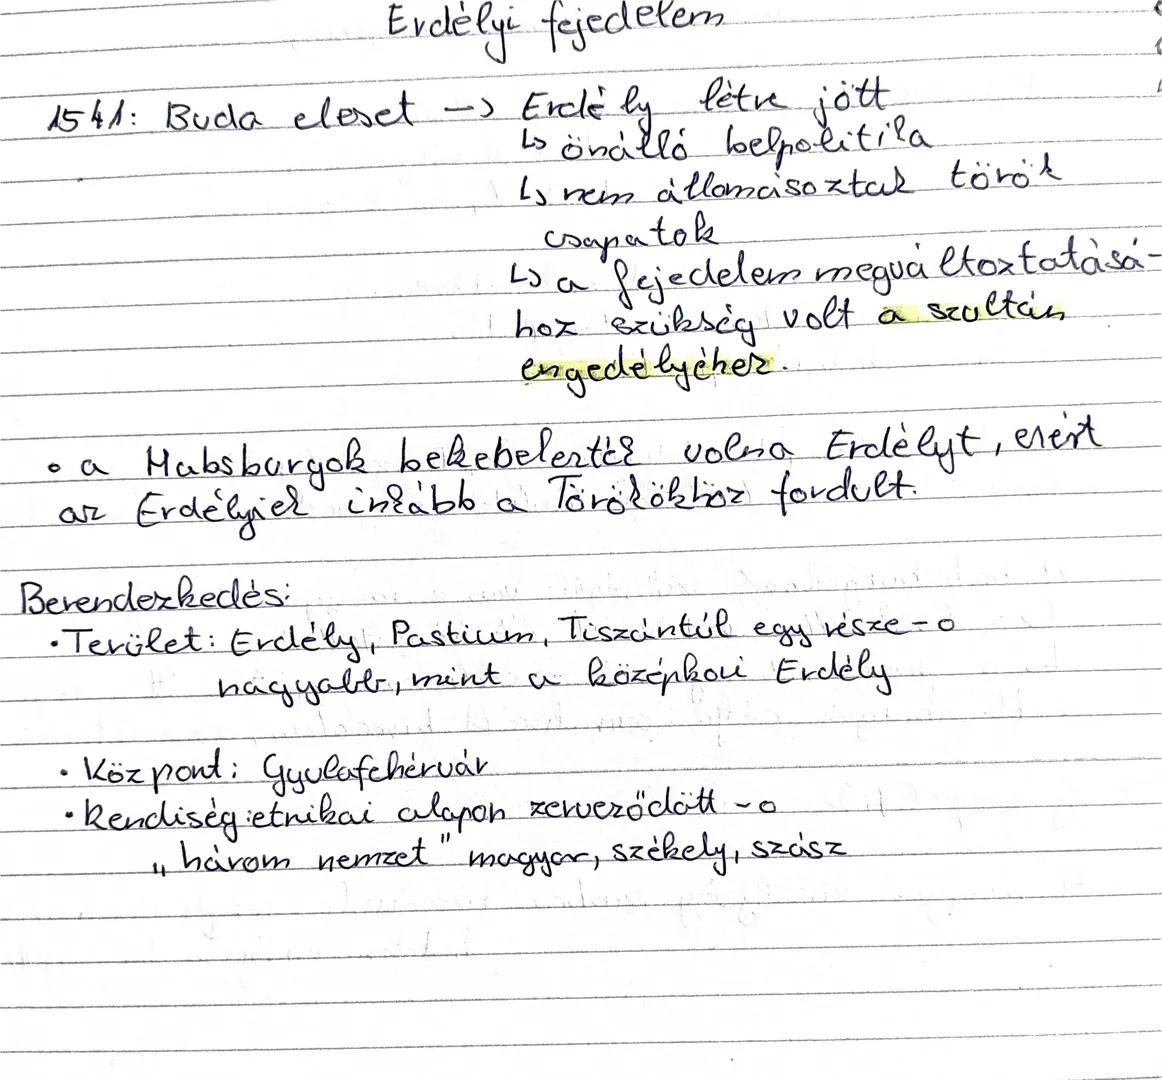 Erdélyi fejedelem
1541: Buda eleset -> Erdély létre jött
↳ önálló belpolitika
↳ nem állomásoztak török
csapatok
↳ a fejedelem megváltoztatásá-
hoz szükség volt a szultán
engedélyéhez.
• a Habsburgok bekebelezték volna Erdélyt, ezért
az Erdélyiek inkább a Törökökhöz fordult.
Berendezkedés:
• Terület: Erdély, Pastium, Tiszántúl egy része -o
nagyabb, mint a középkori Erdély
• Központ: Gyulafehérvár
• Rendiség: etnikai alapon zerveződött -o
„három nemzet" magyar, székely, szász